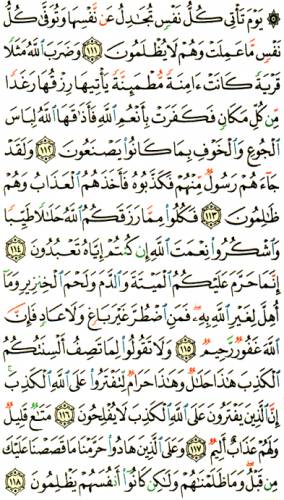 ۞ يَوْمَ تَأْتِى كُلُّ نَفْسٍ تُجَٰدِلُ عَن نَّفْسِهَا وَتُوَفَّىٰ كُلُّ
نَفْسٍ مَّا عَمِلَتْ وَهُمْ لَا يُظْلَمُونَ ١١١ وَضَرَبَ ٱللَّهُ مَثَلًا
قَرْيَةً كَانَتْ ءَامِنَةً مُّطْمَئِنَّةً يَأْتِيهَا رِزْقُهَا رَغَدًا
مِّن كُلِّ مَكَانٍ فَكَفَرَتْ بِأَنْعُمِ ٱللَّهِ فَأَذَٰقَهَا ٱللَّهُ لِبَاسَ
ٱلْجُوعِ وَٱلْخَوْفِ بِمَا كَانُوا۟ يَصْنَعُونَ ١١٢ وَلَقَدْ
جَآءَهُمْ رَسُولٌ مِّنْهُمْ فَكَذَّبُوهُ فَأَخَذَهُمُ ٱلْعَذَابُ وَهُمْ
ظَٰلِمُونَ ١١٣ فَكُلُوا۟ مِمَّا رَزَقَكُمُ ٱللَّهُ حَلَٰلًا طَيِّبًا
وَٱشْكُرُوا۟ نِعْمَتَ ٱللَّهِ إِن كُنتُمْ إِيَّاهُ تَعْبُدُونَ ١١٤
إِنَّمَا حَرَّمَ عَلَيْكُمُ ٱلْمَيْتَةَ وَٱلدَّمَ وَلَحْمَ ٱلْخِنزِيرِ وَمَآ
أُهِلَّ لِغَيْرِ ٱللَّهِ بِهِۦ فَمَنِ ٱضْطُرَّ غَيْرَ بَاغٍ وَلَا عَادٍ فَإِنَّ
ٱللَّهَ غَفُورٌ رَّحِيمٌ ١١٥ وَلَا تَقُولُوا۟ لِمَا تَصِفُ أَلْسِنَتُكُمُ
ٱلْكَذِبَ هَٰذَا حَلَٰلٌ وَهَٰذَا حَرَامٌ لِّتَفْتَرُوا۟ عَلَى ٱللَّهِ ٱلْكَذِبَ ۚ
إِنَّ ٱلَّذِينَ يَفْتَرُونَ عَلَى ٱللَّهِ ٱلْكَذِبَ لَا يُفْلِحُونَ ١١٦ مَتَٰعٌ قَلِيلٌ
وَلَهُمْ عَذَابٌ أَلِيمٌ ١١٧ وَعَلَى ٱلَّذِينَ هَادُوا۟ حَرَّمْنَا مَا قَصَصْنَا عَلَيْكَ
مِن قَبْلُ ۖ وَمَا ظَلَمْنَٰهُمْ وَلَٰكِن كَانُوٓا۟ أَنفُسَهُمْ يَظْلِمُونَ ١١٨